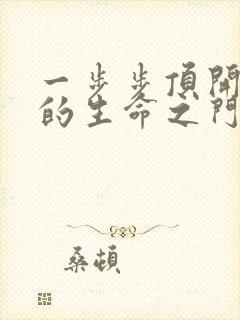 一步步頂開
的生命之門
桑頓